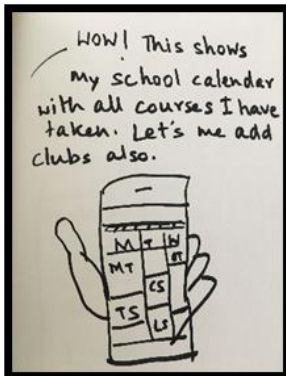 WOW! This shows
my school calendar
with all courses I have
taken. Let's me add
clubs also.
M T W
MT
ST
CS
TS
LS